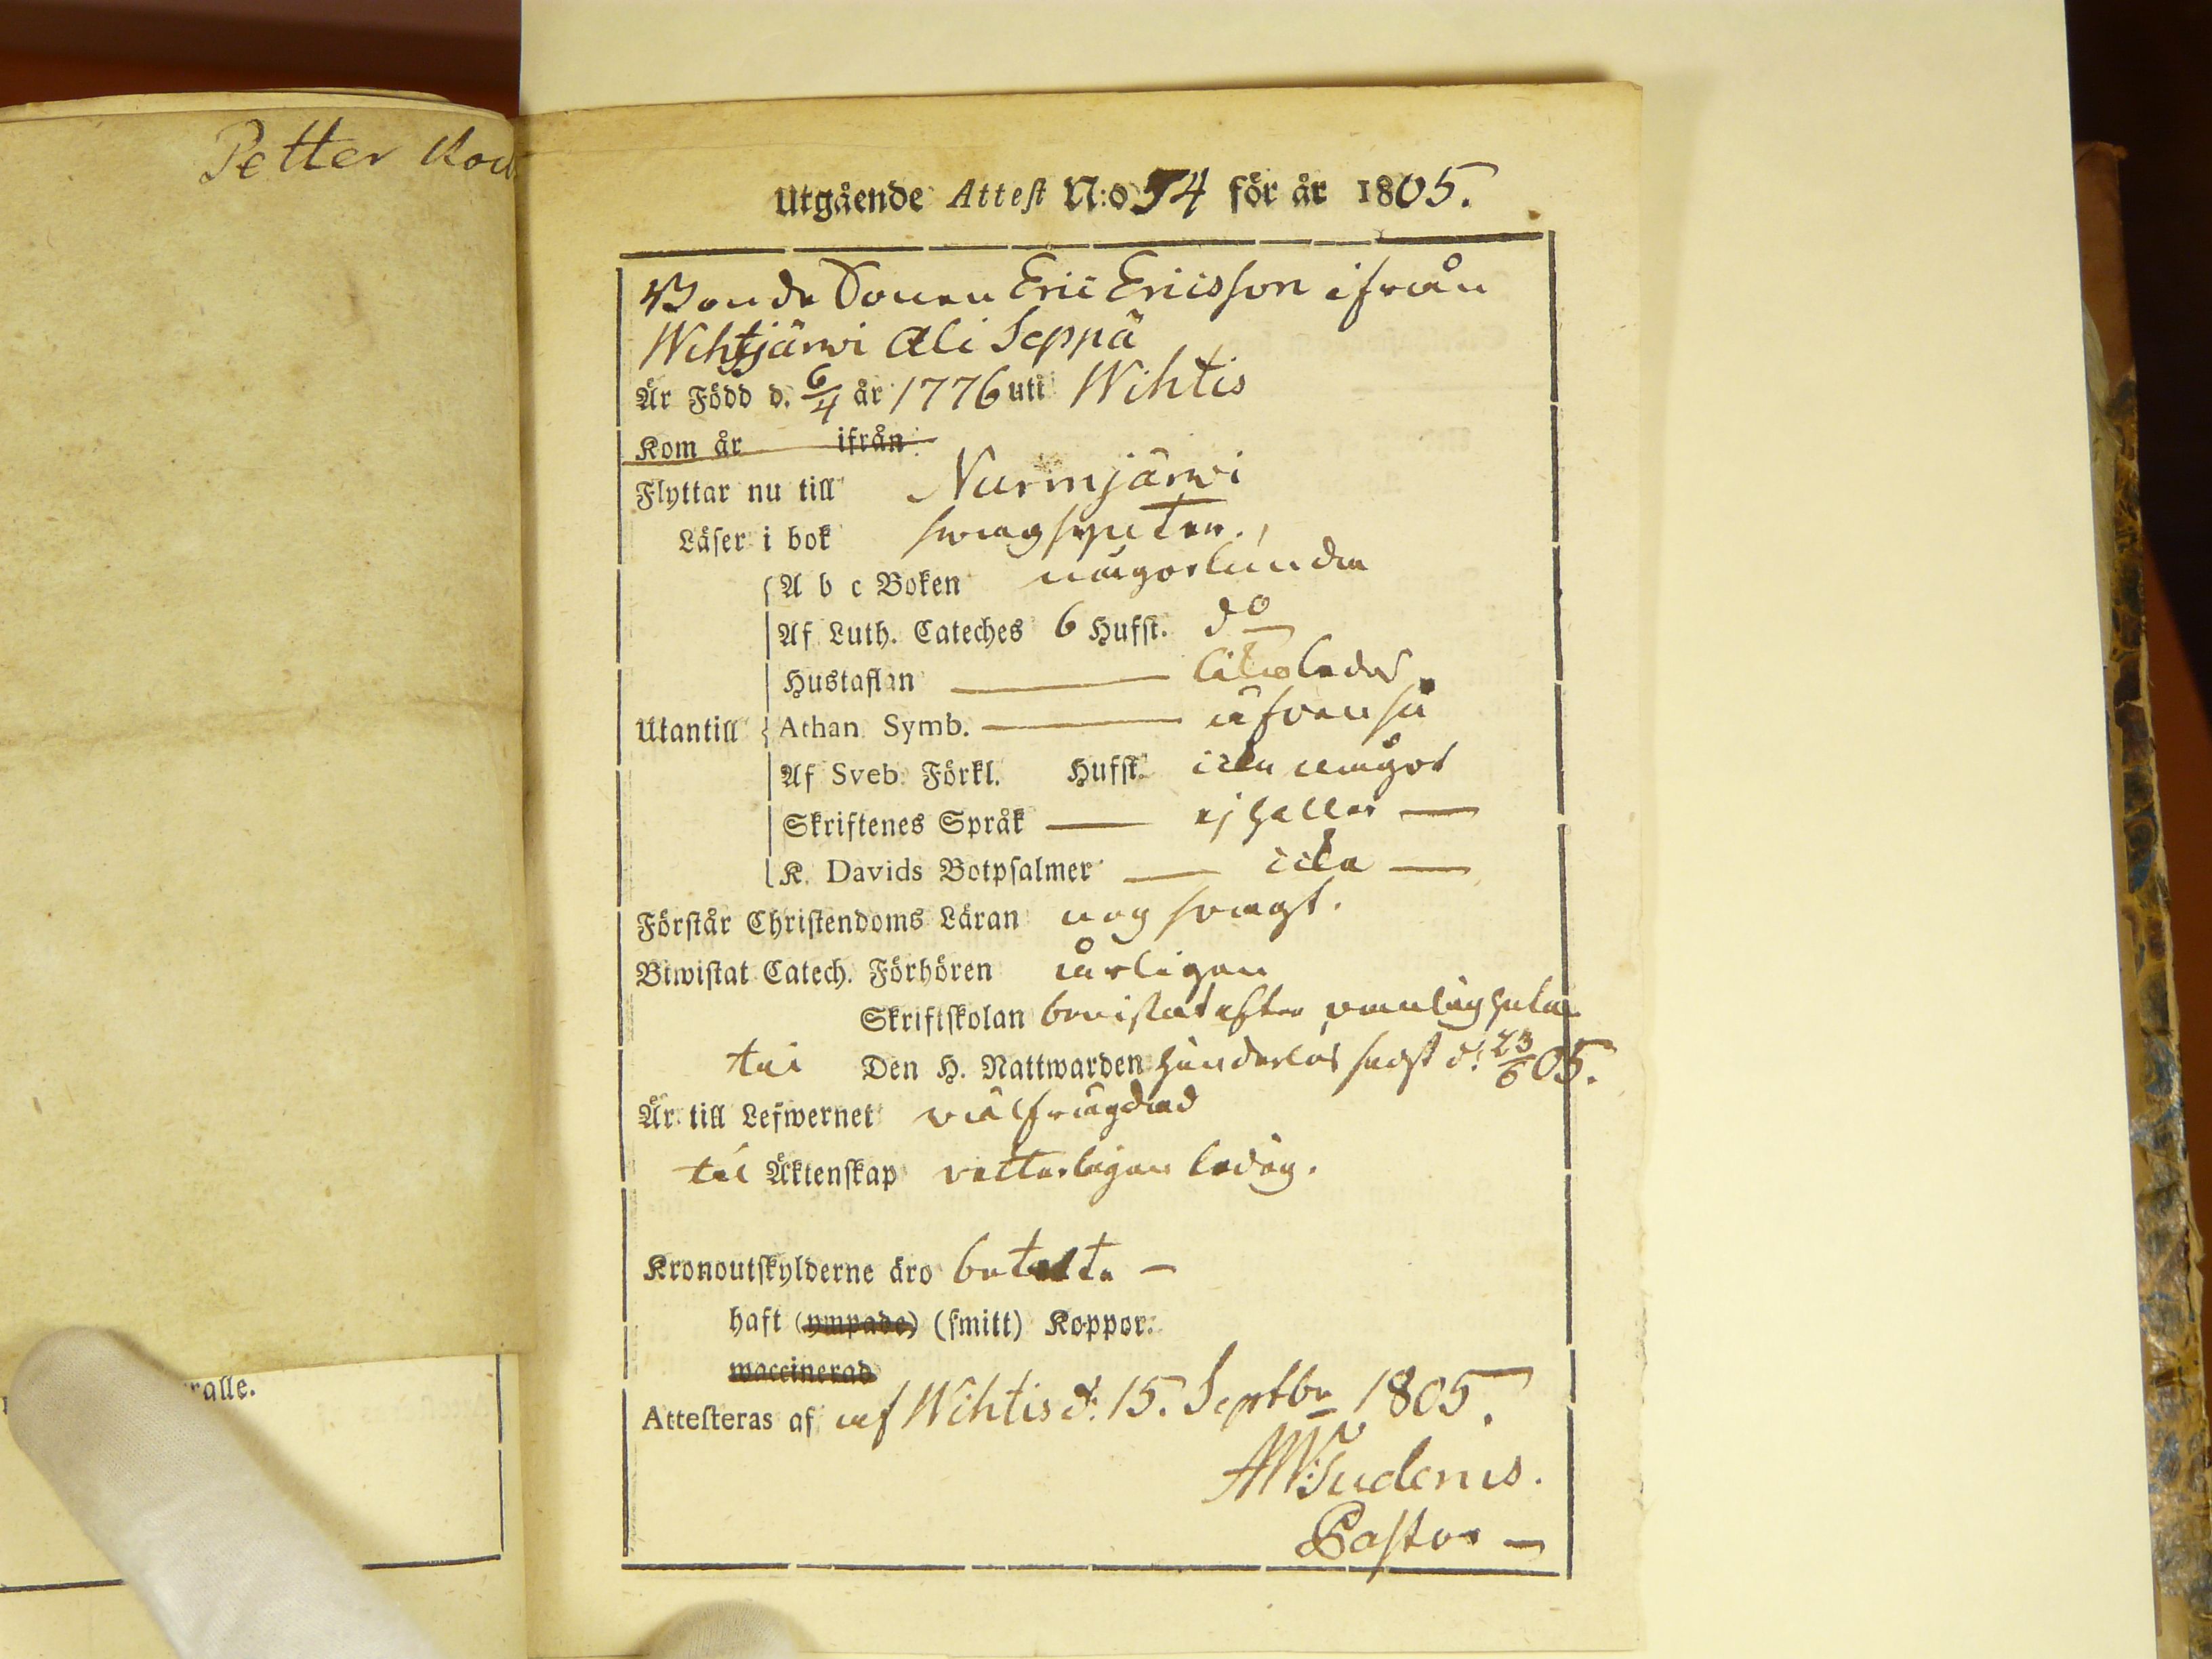 Petter
Utgående Attest N:o 54 för år 1805.
Bonde Sonen Eric Ericsson ifrån
Wihtjärwi Ali Seppä
Är Född d. 6/4 år 1776 uti Wihtis
Kom år ifrån
Flyttar nu till Nurmjärwi
Läser i bok swagsynter.
A b c Boken någorlunda
Af Luth. Cateches 6 Hufst. do
Hustaflan likaledes
Utantill Athan. Symb. äfvenså
Af Sveb. Förkl. Hufst. icke något
Skriftenes Språk ej heller
K. Davids Botpsalmer icke
Förstår Christendoms Läran nog swagt.
Biwistat Catech. Förhören årligen
Skriftskolan bevistat efter
Den H. Nattwarden hinderlös sidst d. 23/6 05.
Är till Lefwernet wälfrägdad
til Äktenskap vetterligen ledig.
Kronoutskylderne äro betalte
haft (ympade) (smitt) Koppor.
waccinerad
Attesteras af uf Wihtis d. 15. Septbr 1805.
Pastor
ralle.